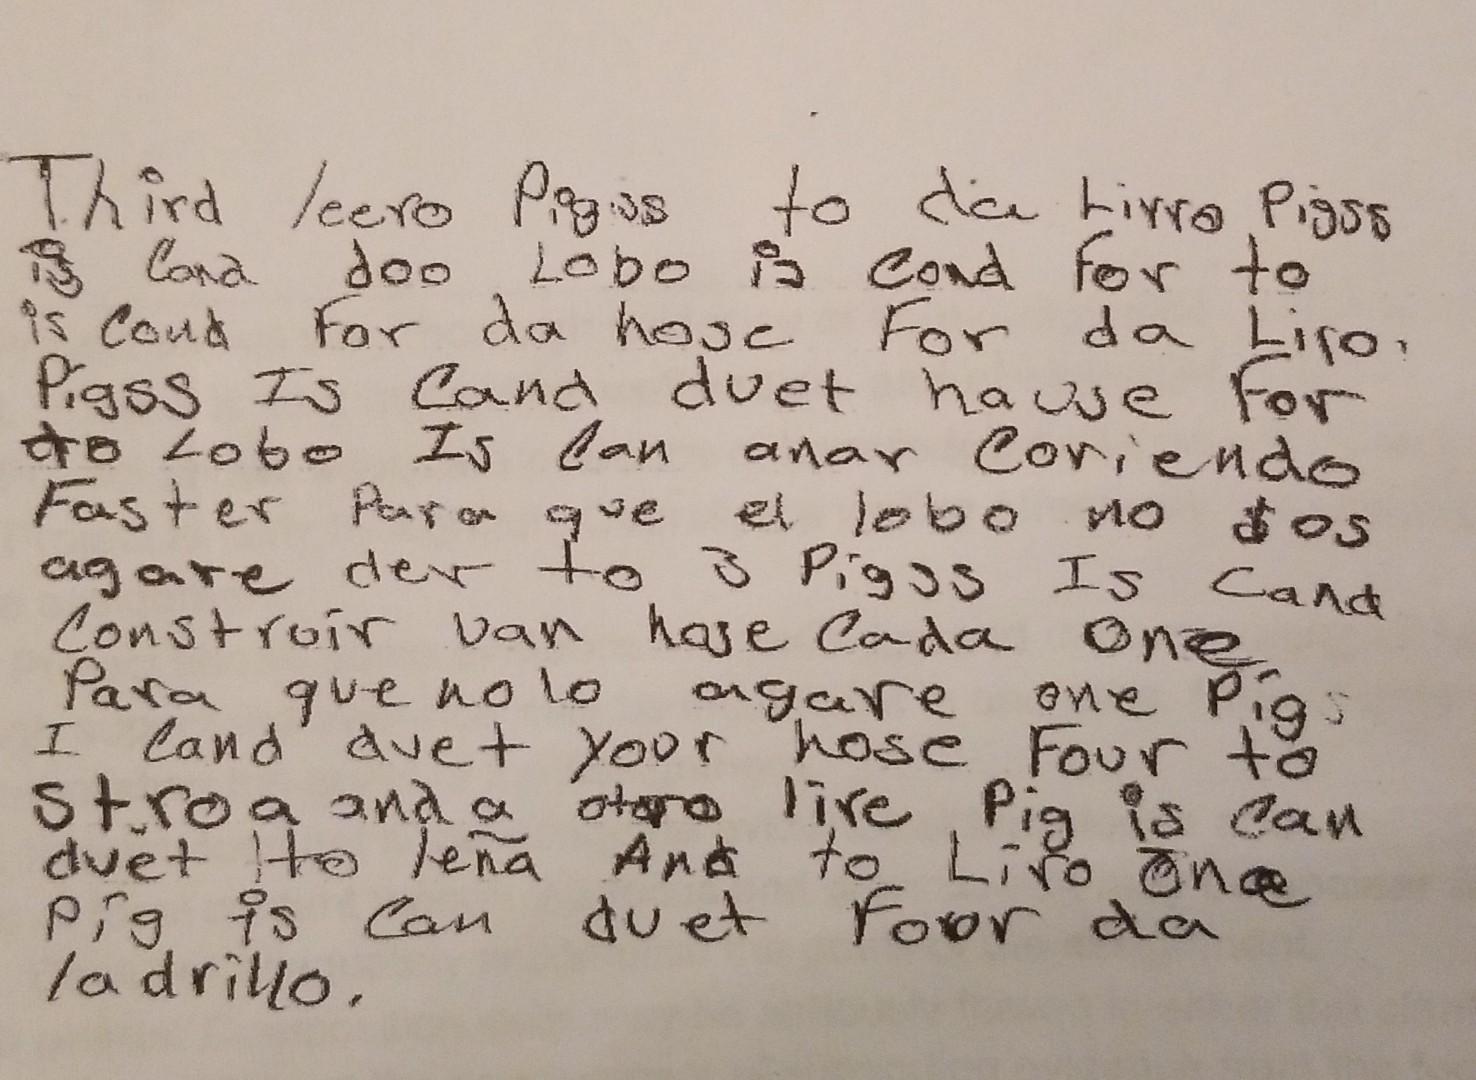 Third leero Pigss to da Lirro Pigss
is Cand doo Lobo is Cond For to
is Coud For da hose For da Liro.
Pigss Is Cand duet hause For
to Lobo Is Can anar Coriendo
Faster Para que el lobo no los
agare der to 3 Pigss Is Cand
Construir van hose Cada One
Para que no lo agare one Pigs
I Cand duet Your hose Four to
stroa and a otoro lire Pig is Can
duet to leña And to Liro One
Pig is Can duet Foor da
ladrillo.